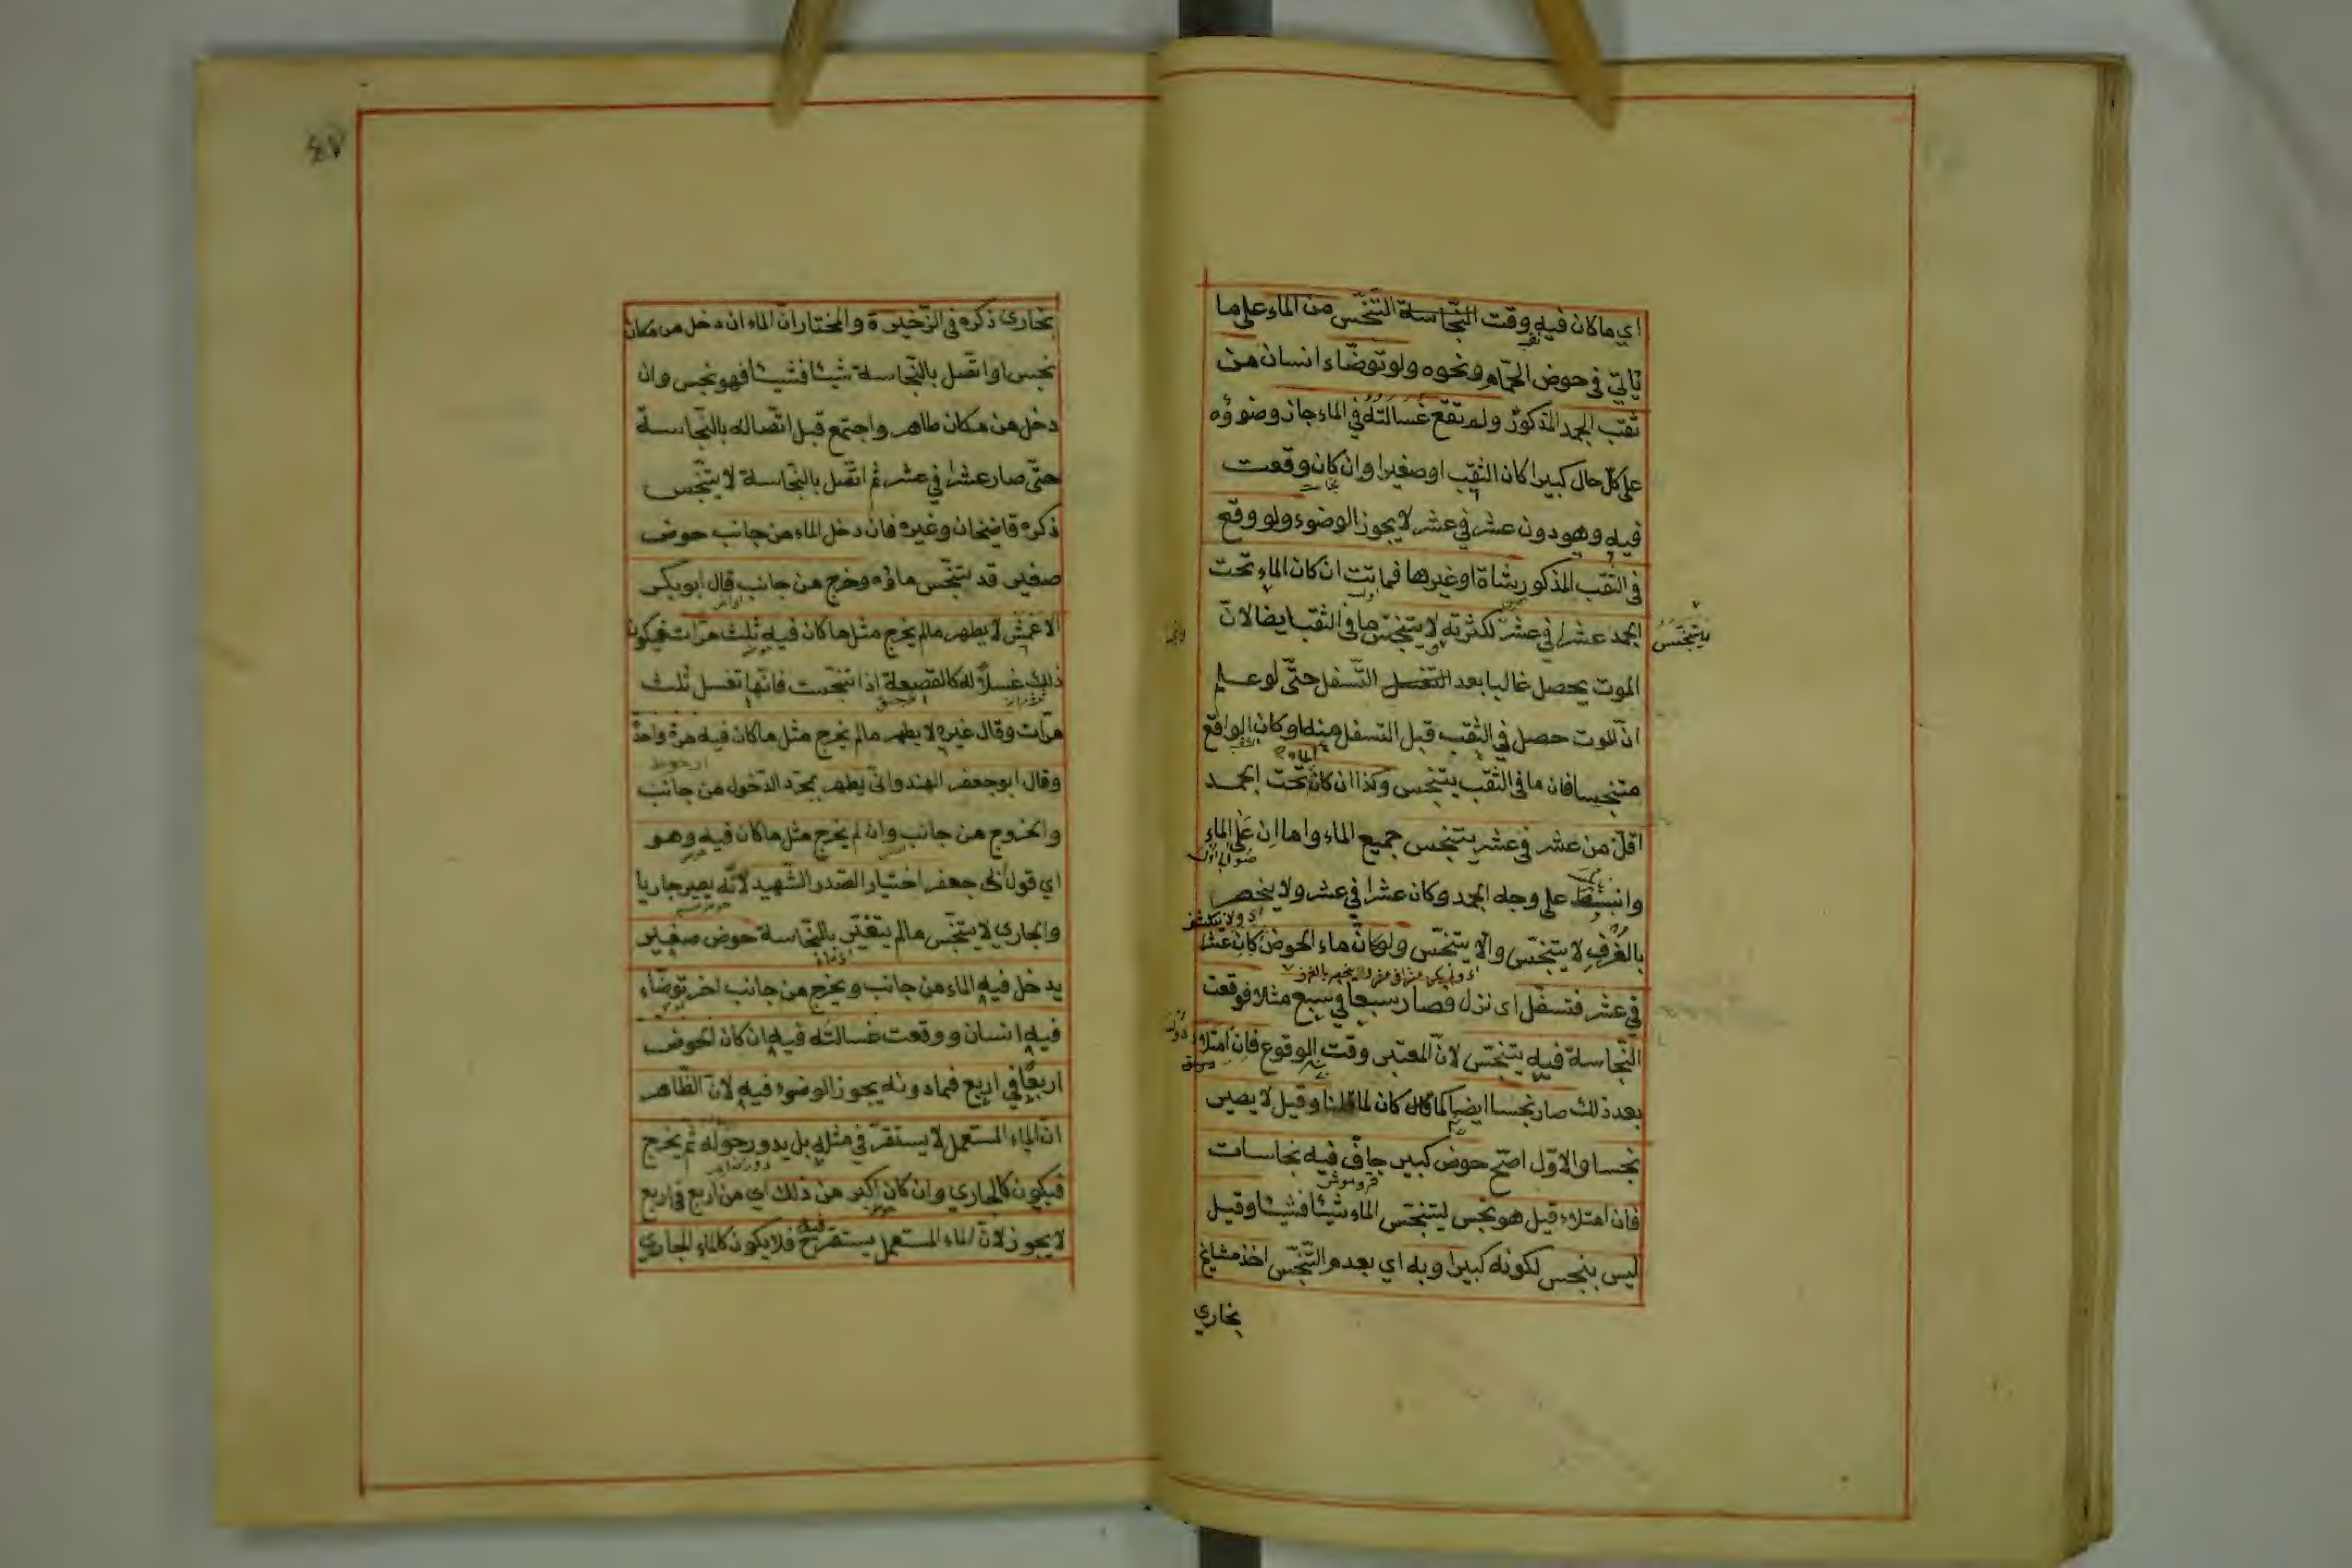 اي ماكان فيه وقت النجاسة التنجّس من الماء على ما
ياتي في حوض الحمّام ونحوه ولو توضّاء انسان من
ثقب الجمد المذكور ولم تقع غسالته في الماء جاز وضوؤه
على كلّ حال كبيرا كان الثقب او صغيرا وان كان وقعت
فيه وهو دون عشر في عشر لا يجوز الوضوء ولو وقع
في الثقب المذكور شاة اوغيرها فماتت ان كان الماء تحت
الجمد عشرا في عشر لكثرته لا يتنجّس ما في الثقب ايضا لانّ
يتنجّس
الموت يحصل غالبا بعد التسفل حتّى لو علم
انّ الموت حصل في الثقب قبل التسفل منه او كان الواقع
متنجسا فان ما في الثقب يتنجس وكذا ان كان تحت الجمد
الماء
اقلّ من عشر في عشر يتنجس جميع الماء واما ان على الماء
وانبسط على وجه الجمد وكان عشرا في عشر ولا ينحصر
اي ولا ينكشف
بالغرف لا يتنجّس والّا يتنجّس ولو كان ماء الحوض كان عشرا
في عشر فتسفّل اى نزل فصار سبعا في سبع مثلا فوقعت
النّجاسة فيه يتنجّس لانّ المعتبر وقت الوقوع فان امتلاء
بعد ذلك صار نجسا ايضا كما كان لما قلنا وقيل لا يصير
نجسا والاوّل اصّح حوض كبير جافّ فيه نجاسات
فان امتلاء قيل هو نجس ليتنجّس الماء شيئا فشيئا وقيل
ليس بنجس لكونه كبيرا وبه اي بعدم التنجّس اخذ مشايخ
بخاري
٤٧
بخاري ذكره في الذّخيرة والمختار ان الماء ان دخل من مكان
نجس او اتصل بالنّجاسة شيئا فشيئا فهو نجس وان
دخل من مكان طاهر واجتمع قبل اتّصاله بالنّجاسة
حتّى صار عشرا في عشر ثم اتّصل بالنّجاسة لا يتنجّس
ذكره قاضيخان وغيره فان دخل الماء من جانب حوض
صغير قد تنجّس ماؤه وخرج من جانب قال ابو بكر
الاعمش لا يطهر مالم يخرج مثل ما كان فيه ثلث مرّات فيكون
ذلك غسلا له كالقصعة اذا تنجّست فانّها تغسل ثلث
مرّات وقال غيره لا يطهر مالم يخرج مثل ما كان فيه مرة واحدة
وقال ابو جعفر الهندوانّى يطهر بمجرّد الدّخول من جانب
والخروج من جانب وان لم يخرج مثل ما كان فيه وهو
اي قول ابي جعفر اختيار الصّدر الشّهيد لانّه يصير جاريا
والجاري لا يتنجّس مالم يتغيّر بالنّجاسة حوض صغير
يدخل فيه الماء من جانب ويخرج من جانب اخر توضّاء
فيه انسان ووقعت غسالته فيه ان كان الحوض
اربعًا في اربع فمادونه يجوز الوضوء فيه لانّ الظّاهر
انّ الماء المستعمل لا يستقرّ في مثله بل يدور حوله ثم يخرج
فيكون كالجاري وان كان اكبر من ذلك اي من اربع في اربع
لا يجوز لانّ الماء المستعمل يستقرّ فيه فلا يكون كالماء الجاري